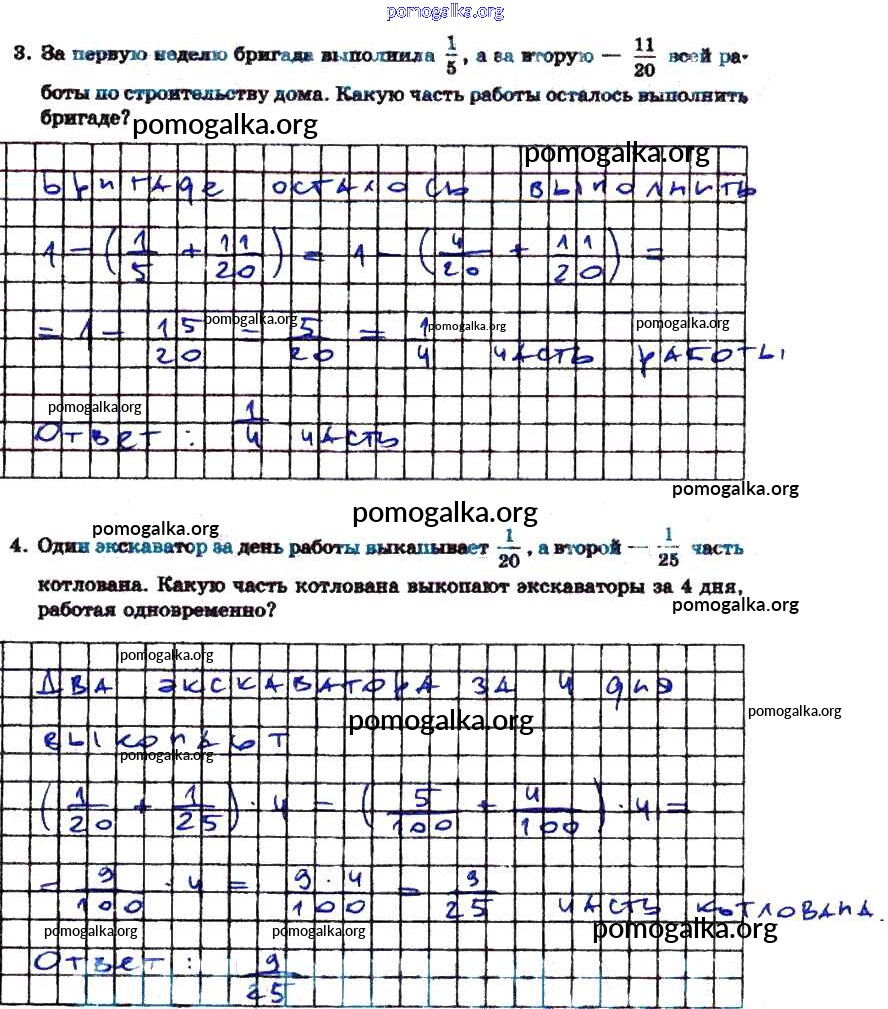 pomogalka.org
3. За первую неделю бригада выполнила 1/5, а за вторую — 11/20 всей ра-
боты по строительству дома. Какую часть работы осталось выполнить
бригаде?
pomogalka.org
pomogalka.org
Бригаде осталось выполнить
1 - (1/5 + 11/20) = 1 - (4/20 + 11/20) =
pomogalka.org pomogalka.org pomogalka.org
= 1 - 15/20 = 5/20 = 1/4 часть работы
pomogalka.org
Ответ: 1/4 часть
pomogalka.org
pomogalka.org
pomogalka.org
4. Один экскаватор за день работы выкапывает 1/20, а второй — 1/25 часть
котлована. Какую часть котлована выкопают экскаваторы за 4 дня,
работая одновременно?
pomogalka.org
pomogalka.org
Два экскаватора за 4 дня
pomogalka.org
pomogalka.org
выкопают
pomogalka.org
(1/20 + 1/25) · 4 = (5/100 + 4/100) · 4 =
= 9/100 · 4 = 9·4/100 = 9/25 часть котлована.
pomogalka.org pomogalka.org pomogalka.org
Ответ: 9/25